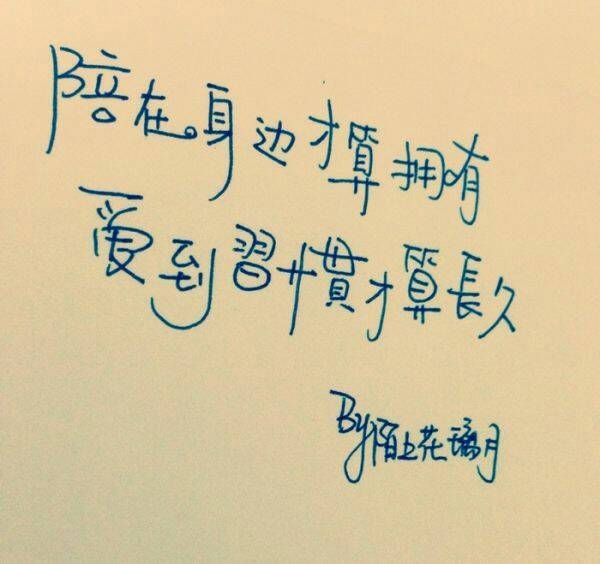 陪在身边才算拥有
爱到習慣才算長久
By陌上花璃月